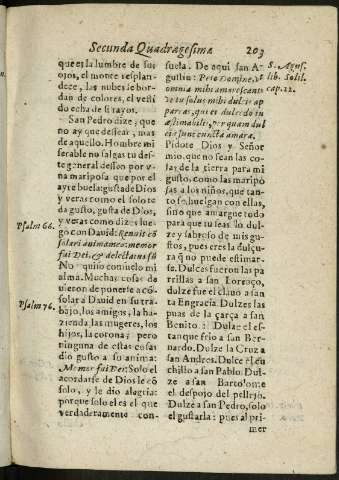 Secunda Quadragesimæ 203
que es la lumbre de sus
ojos, el monte resplan-
dece, las nubes le bor-
dan de colores, el vesti
do echa de si rayos.
San Pedro dize, que
no ay que dessear, mas
de aquello. Hombre mi
serable no salgas tu des-
te general desseo por v-
na mariposa que por el
ayre buela: gusta de Dios
y veras como el solo te
da gusto, gusta de Dios,
y veras como dizes lue-
go con David: Renuit cõ
solari anima mea: memor
fui Dei, & delectatus sũ
No quiso consuelo mi
alma. Muchas cosas de
uieron de ponerle a cõ-
solar a David en su tra-
bajo, los amigos, la ha-
zienda las mugeres, los
hijos, la corona; pero
ninguna de estas cosas
dio gusto a su anima:
Memor fui Dei: Solo el
acordarse de Dios le cõ
solo, y le dio alegria:
porque solo el es el que
verdaderamente con-
Psalm 66.
Psalm 76.
suela. De aqui san A-
gustin: Peto Domine, vt
omnia mihi amarescant
& tu solus mihi dulcis ap
pareas, qui es dulcedo in
æstimabilis, per quam dul
cia sunt cuncta amara.
Pidote Dios y Señor
mio, que no sean las co-
sas de la tierra para mi
gusto, como las maripo
sas a los niños, que tan-
to se huelgan con ellas,
sino que amargue todo
para que tu seas lo dul-
ze y sabroso de mis gus-
tos, pues eres la dulçu-
ra q̃ no puede estimar-
se. Dulces fueron las pa
rrillas a san Lorẽço,
dulze fue el clauo a san
ta Engracia. Dulzes las
puas de la çarça a san
Benito: Dulze el es-
tanque frio a san Ber-
nardo. Dulze la Cruz a
san Andres. Dulce el cu
chillo a san Pablo. Dul-
ze a san Bartolome
el despojo del pellejo.
Dulze a san Pedro, solo
el gustarla: pues al pri-
mer
S. Agus.
lib. Solil.
cap. 22.